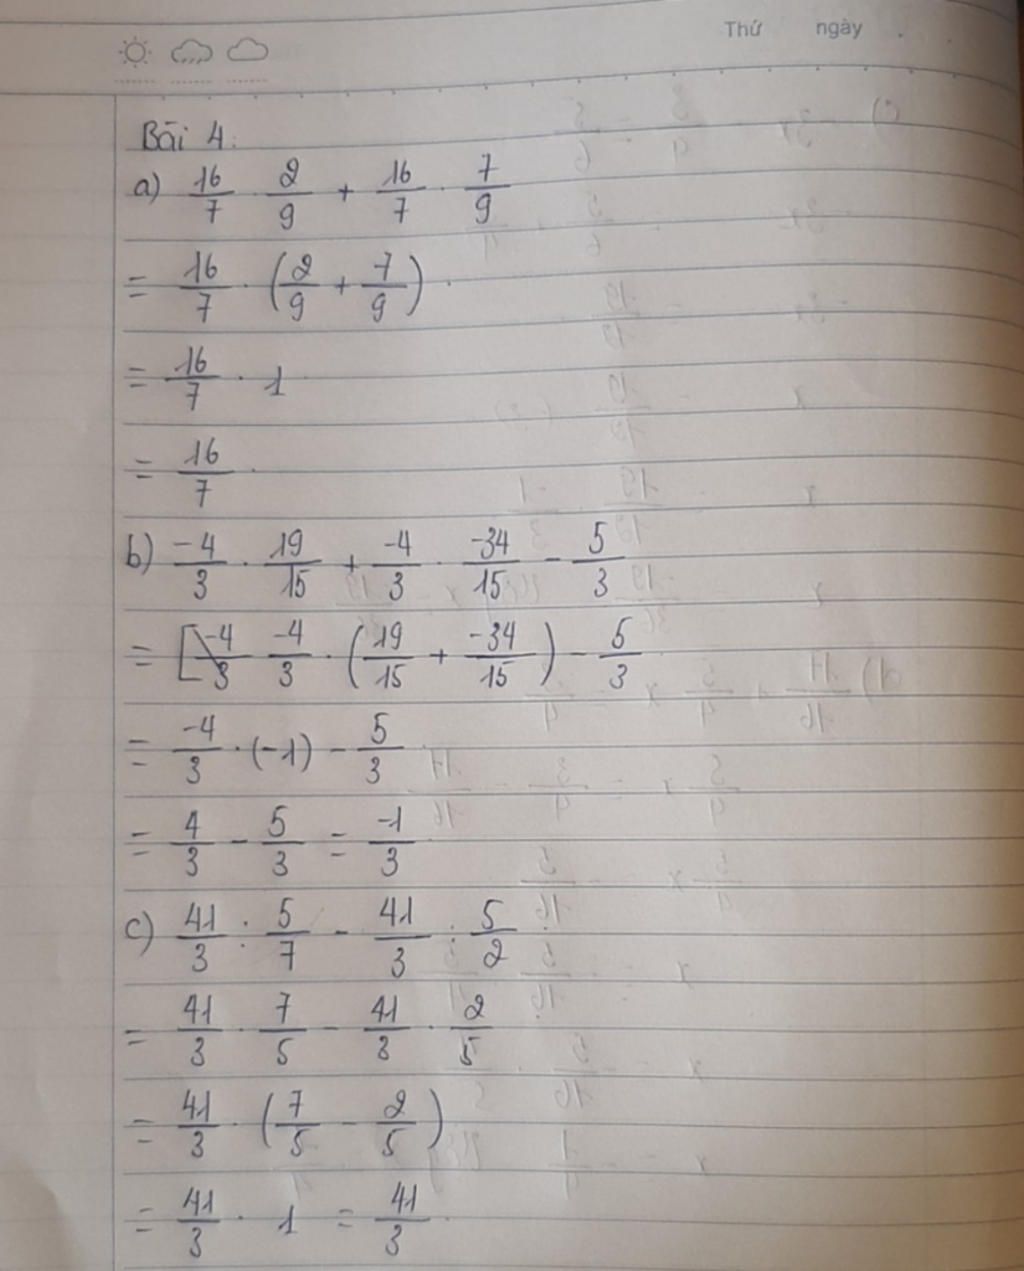 Thứ ngày
Bài 4:
a) 16/7 · 2/9 + 16/7 · 7/9
= 16/7 · (2/9 + 7/9)
= 16/7 · 1
= 16/7
b) -4/3 · 19/15 + -4/3 · -34/15 - 5/3
= [-4/3 -4/3 · (19/15 + -34/15) - 5/3
= -4/3 · (-1) - 5/3
= 4/3 - 5/3 = -1/3
c) 41/3 : 5/7 - 41/3 : 5/2
= 41/3 · 7/5 - 41/3 · 2/5
= 41/3 · (7/5 - 2/5)
= 41/3 · 1 = 41/3